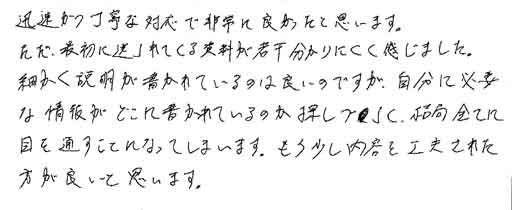 迅速かつ丁寧な対応で非常に良かったと思います。
ただ、最初に送られてくる資料が若干分かりにくく感じました。
細かく説明が書かれているのは良いのですが、自分に必要
な情報がどこに書かれているのか探しづらく、結局全てに
目を通すことになってしまいます。もう少し内容を工夫された
方が良いと思います。